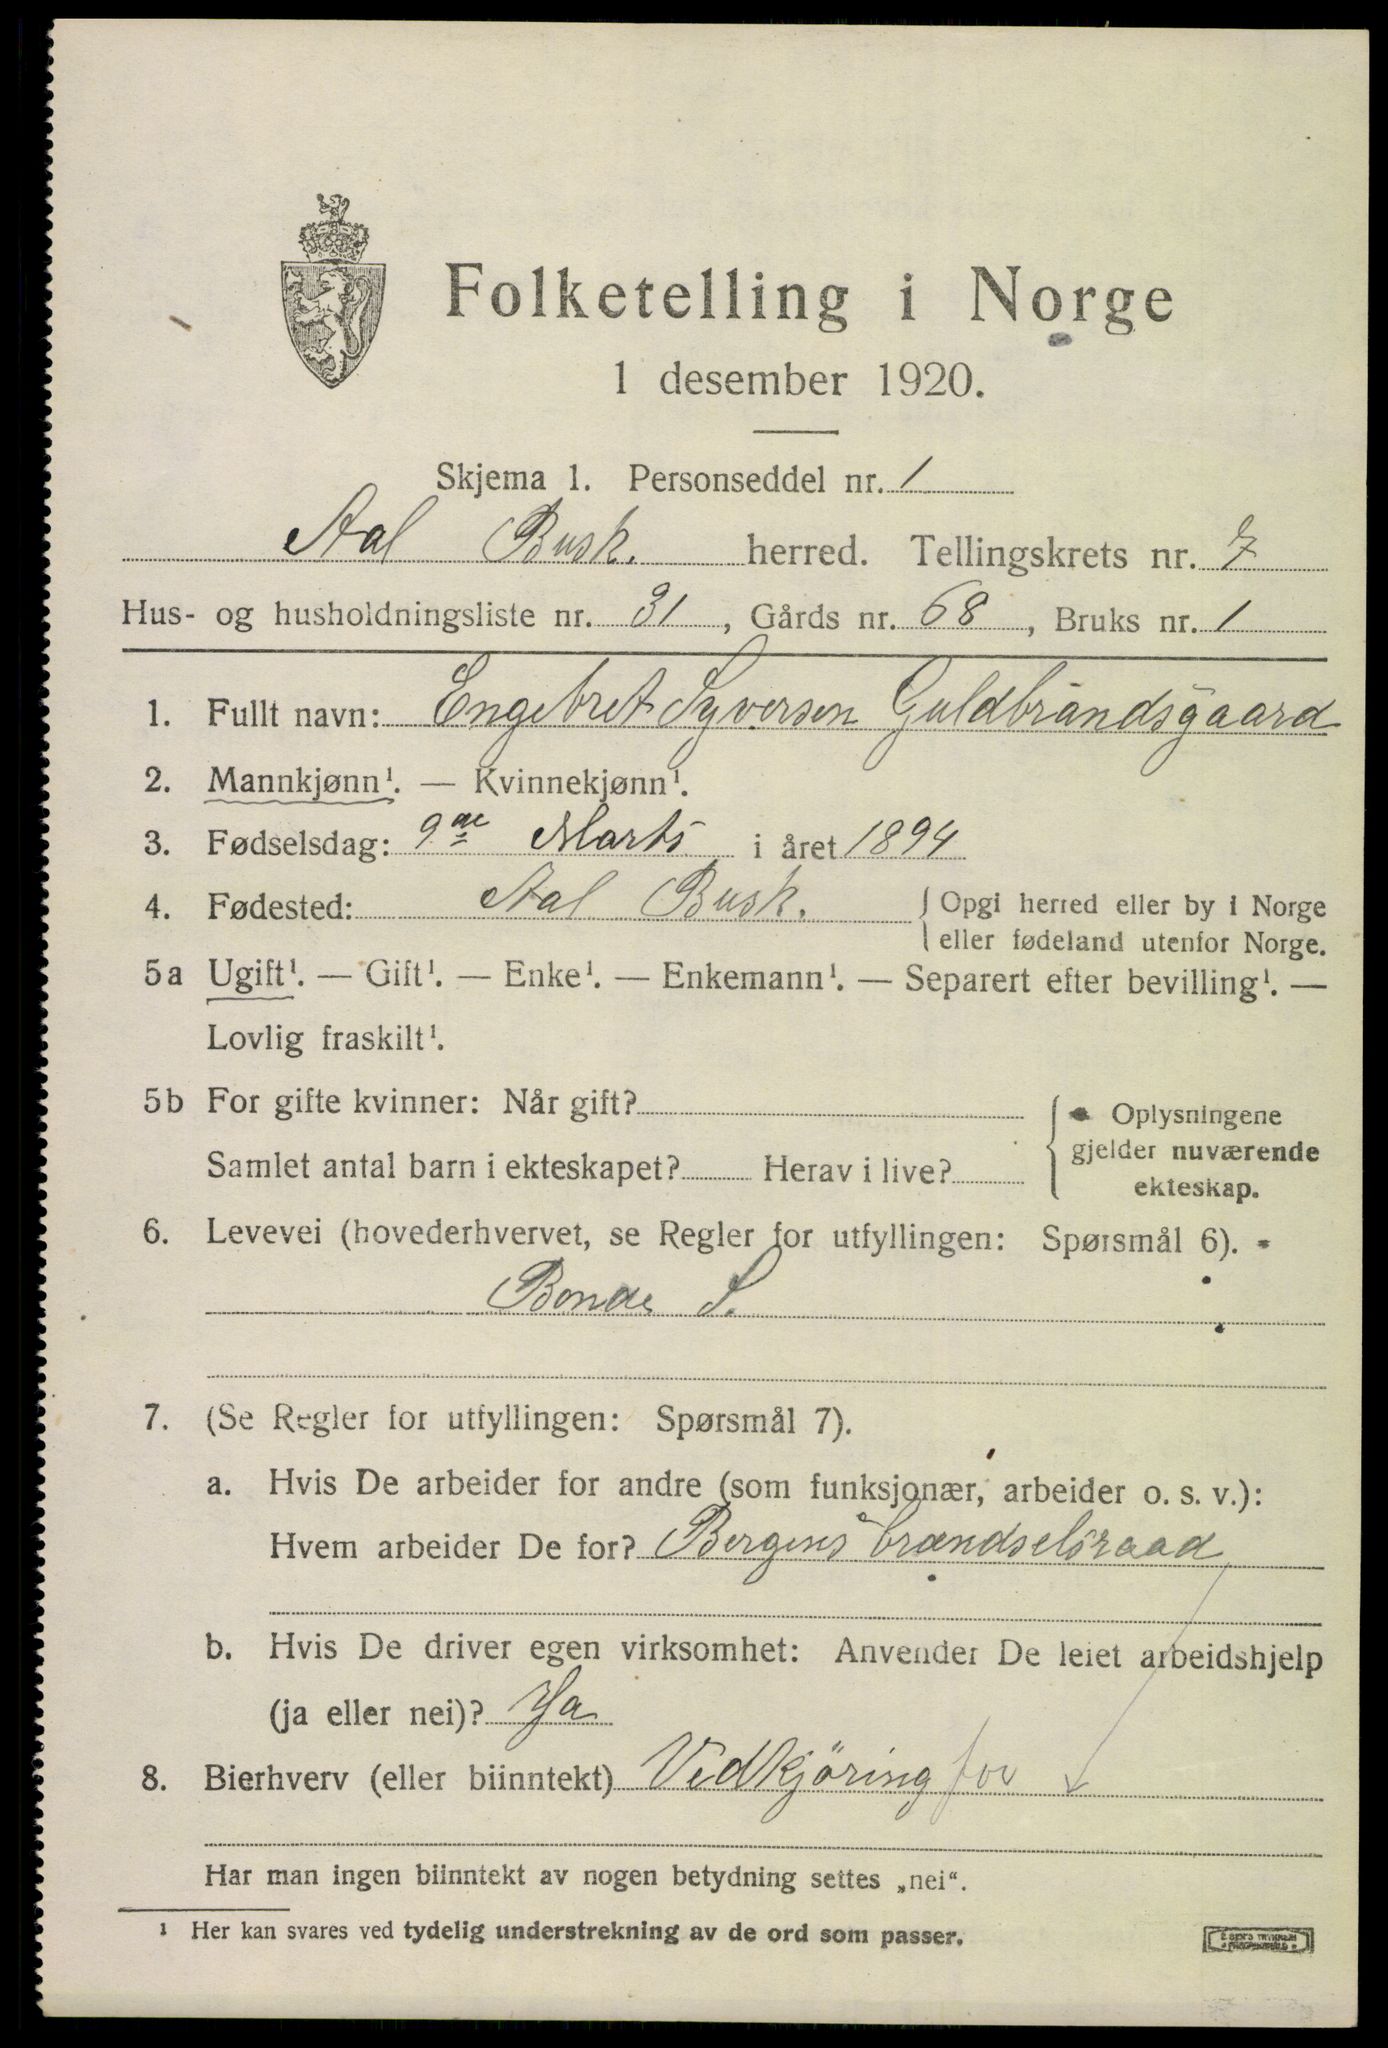 Folketelling i Norge
1 desember 1920.
Skjema 1. Personseddel nr. 1
Aal Busk. herred. Tellingskrets nr. 7
Hus- og husholdningsliste nr. 31, Gårds nr. 68, Bruks nr. 1
1. Fullt navn: Engebret Syversen Guldbrandsgaard
2. Mannkjønn¹. — Kvinnekjønn¹.
3. Fødselsdag: 9de Marts i året 1894
4. Fødested: Aal Busk. { Opgi herred eller by i Norge
eller fødeland utenfor Norge.
5a Ugift¹. — Gift¹. — Enke¹. — Enkemann¹. — Separert efter bevilling¹. —
Lovlig fraskilt¹.
5b For gifte kvinner: Når gift?
Samlet antal barn i ekteskapet? Herav i live?
{ Oplysningene
gjelder nuværende
ekteskap.
6. Levevei (hovederhvervet, se Regler for utfyllingen: Spørsmål 6).
Bonde S.
7. (Se Regler for utfyllingen: Spørsmål 7).
a. Hvis De arbeider for andre (som funksjonær, arbeider o. s. v.):
Hvem arbeider De for? Bergens brændselsraad
b. Hvis De driver egen virksomhet: Anvender De leiet arbeidshjelp
(ja eller nei)? Ja
8. Bierhverv (eller biinntekt) Vedkjöring for
Har man ingen biinntekt av nogen betydning settes „nei“.
¹ Her kan svares ved tydelig understrekning av de ord som passer.